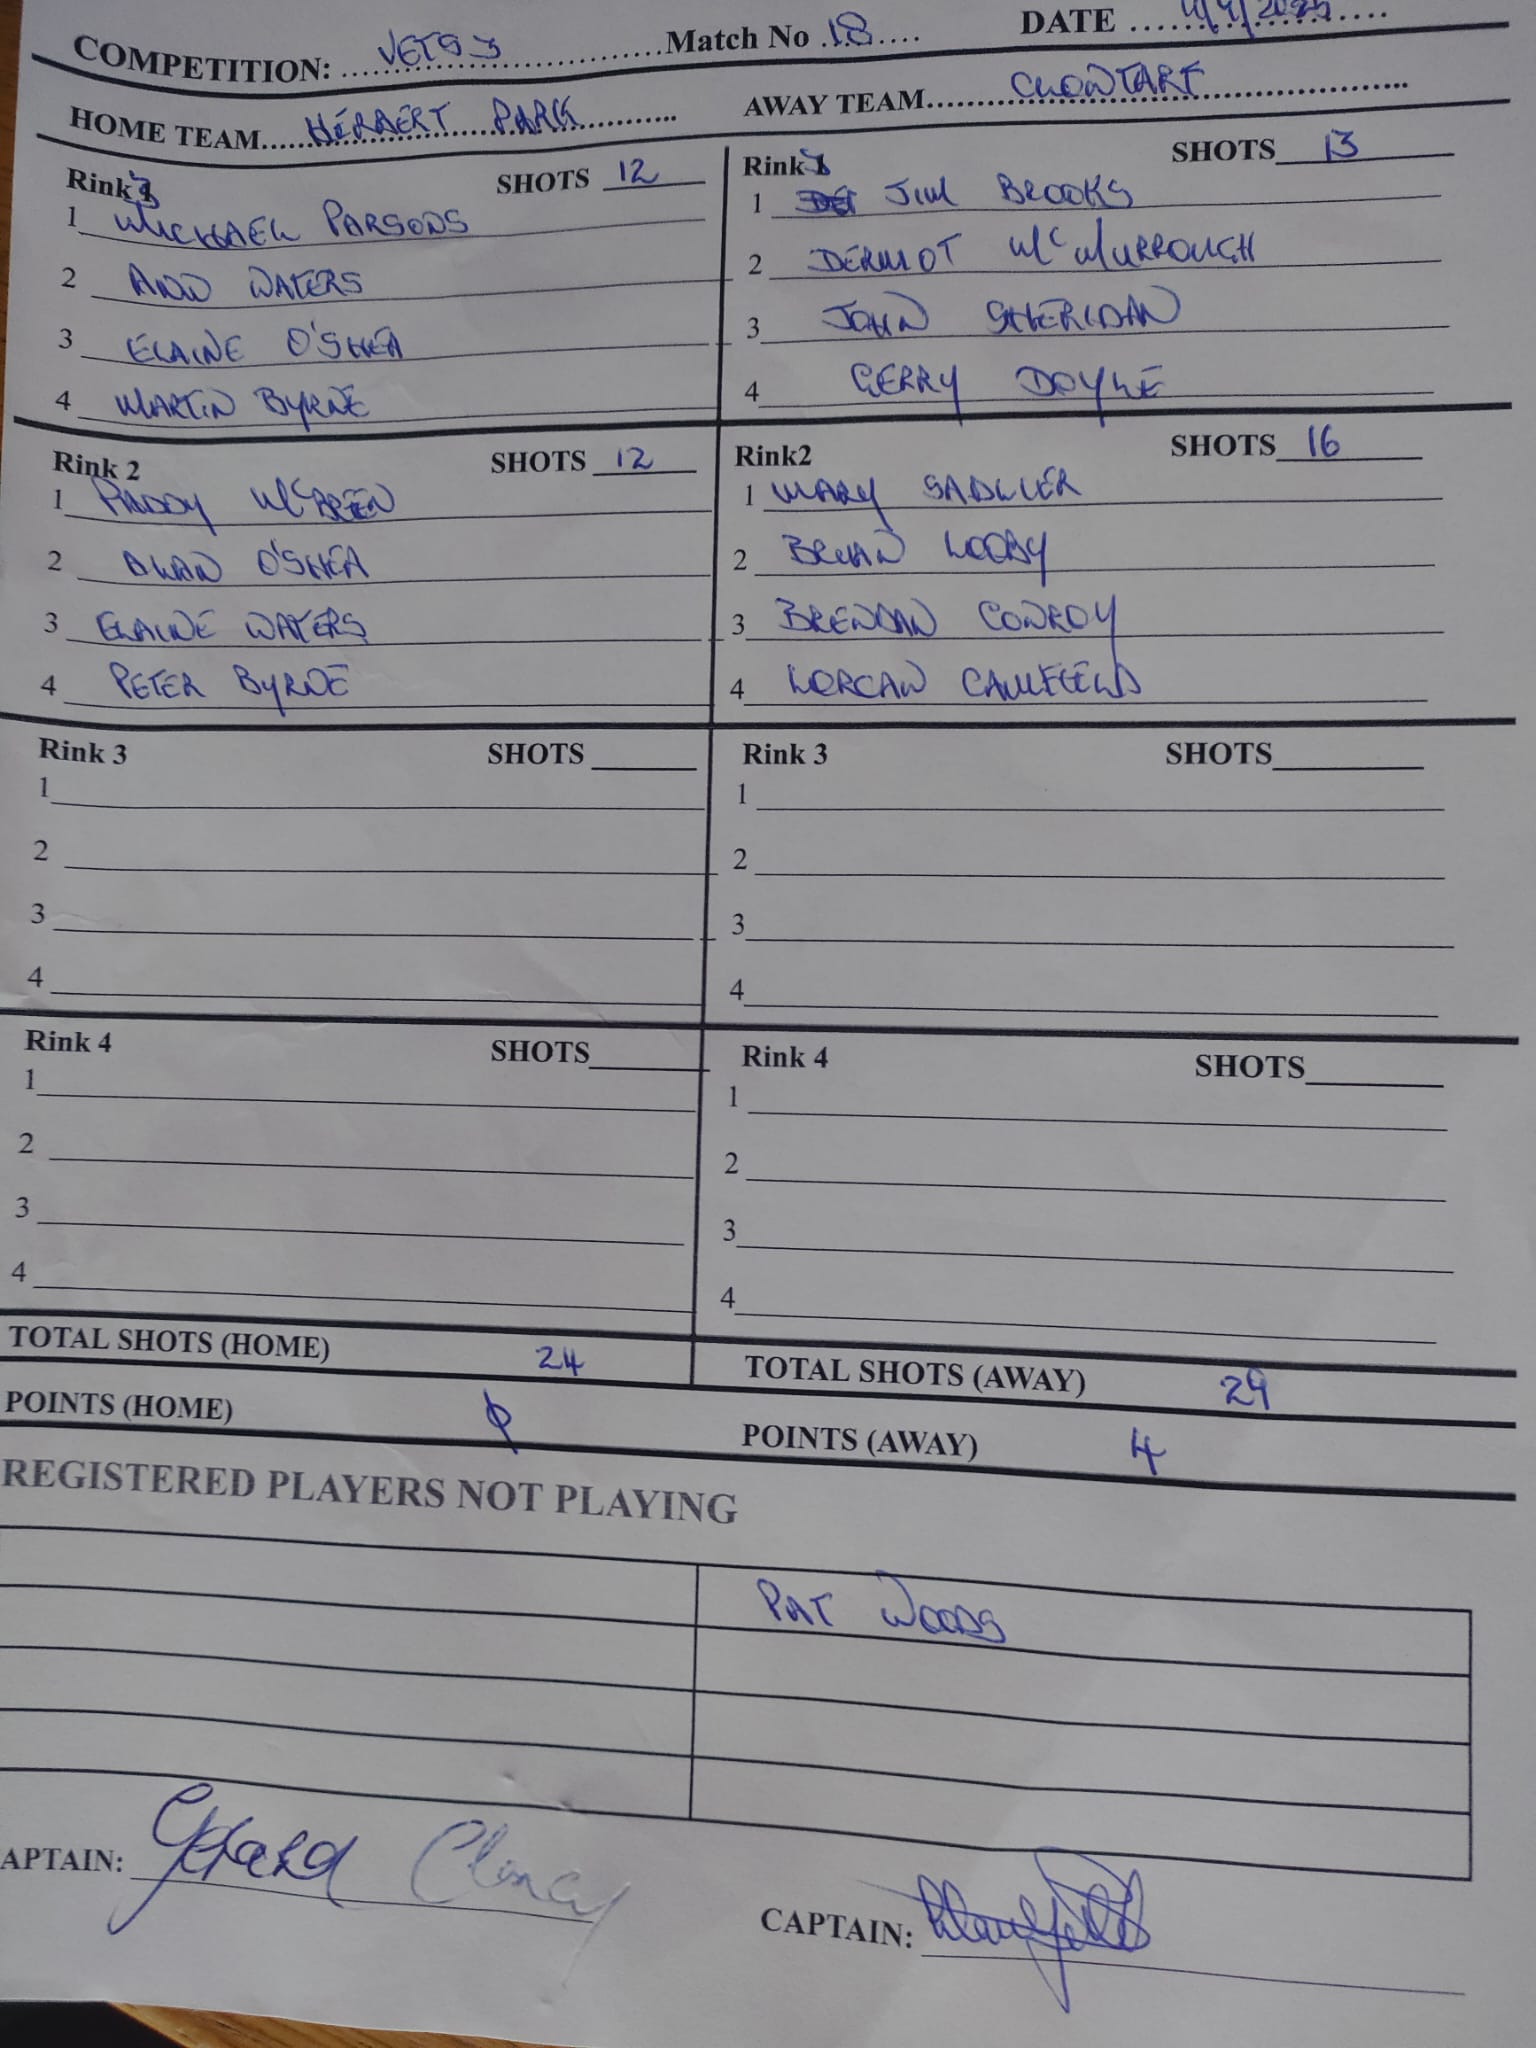 COMPETITION: VETS 3 Match No 18 DATE 4/9/2025
HOME TEAM HERBERT PARK AWAY TEAM CLONTARF
Rink 3 SHOTS 12
1 MICHAEL PARSONS
2 ANN WATERS
3 ELAINE O'SHEA
4 MARTIN BYRNE
Rink SHOTS 13
1 JIM BROOKS
2 DERMOT McMURROUGH
3 JOHN SHERIDAN
4 GERRY DOYLE
Rink 2 SHOTS 12
1 PADDY McBREEN
2 ALAN O'SHEA
3 ELAINE WATERS
4 PETER BYRNE
Rink2 SHOTS 16
1 MARY SADLIER
2 BRIAN LOOBY
3 BRENDAN CONROY
4 LORCAN CAULFIELD
Rink 3 SHOTS
1
2
3
4
Rink 3 SHOTS
1
2
3
4
Rink 4 SHOTS
1
2
3
4
Rink 4 SHOTS
1
2
3
4
TOTAL SHOTS (HOME) 24 TOTAL SHOTS (AWAY) 29
POINTS (HOME) 0 POINTS (AWAY) 4
REGISTERED PLAYERS NOT PLAYING
PAT WOODS
APTAIN: Gerard Clancy
CAPTAIN: